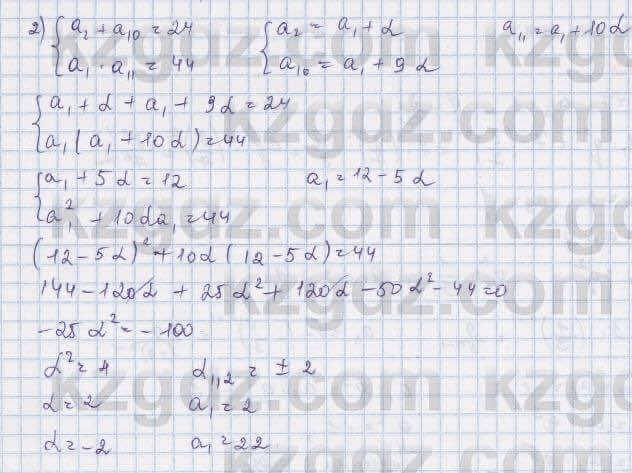 2) { a₂ + a₁₀ = 24   { a₂ = a₁ + d   a₁₁ = a₁ + 10d
{ a₁ · a₁₁ = 44   { a₁₀ = a₁ + 9d
{ a₁ + d + a₁ + 9d = 24
{ a₁ ( a₁ + 10d ) = 44
{ a₁ + 5d = 12   a₁ = 12 - 5d
{ a₁² + 10da₁ = 44
(12 - 5d)² + 10d (12 - 5d) = 44
144 - 120d + 25d² + 120d - 50d² - 44 = 0
-25d² = -100
d² = 4   d₁,₂ = ± 2
d = 2   a₁ = 2
d = -2   a₁ = 22
kzgdz.com